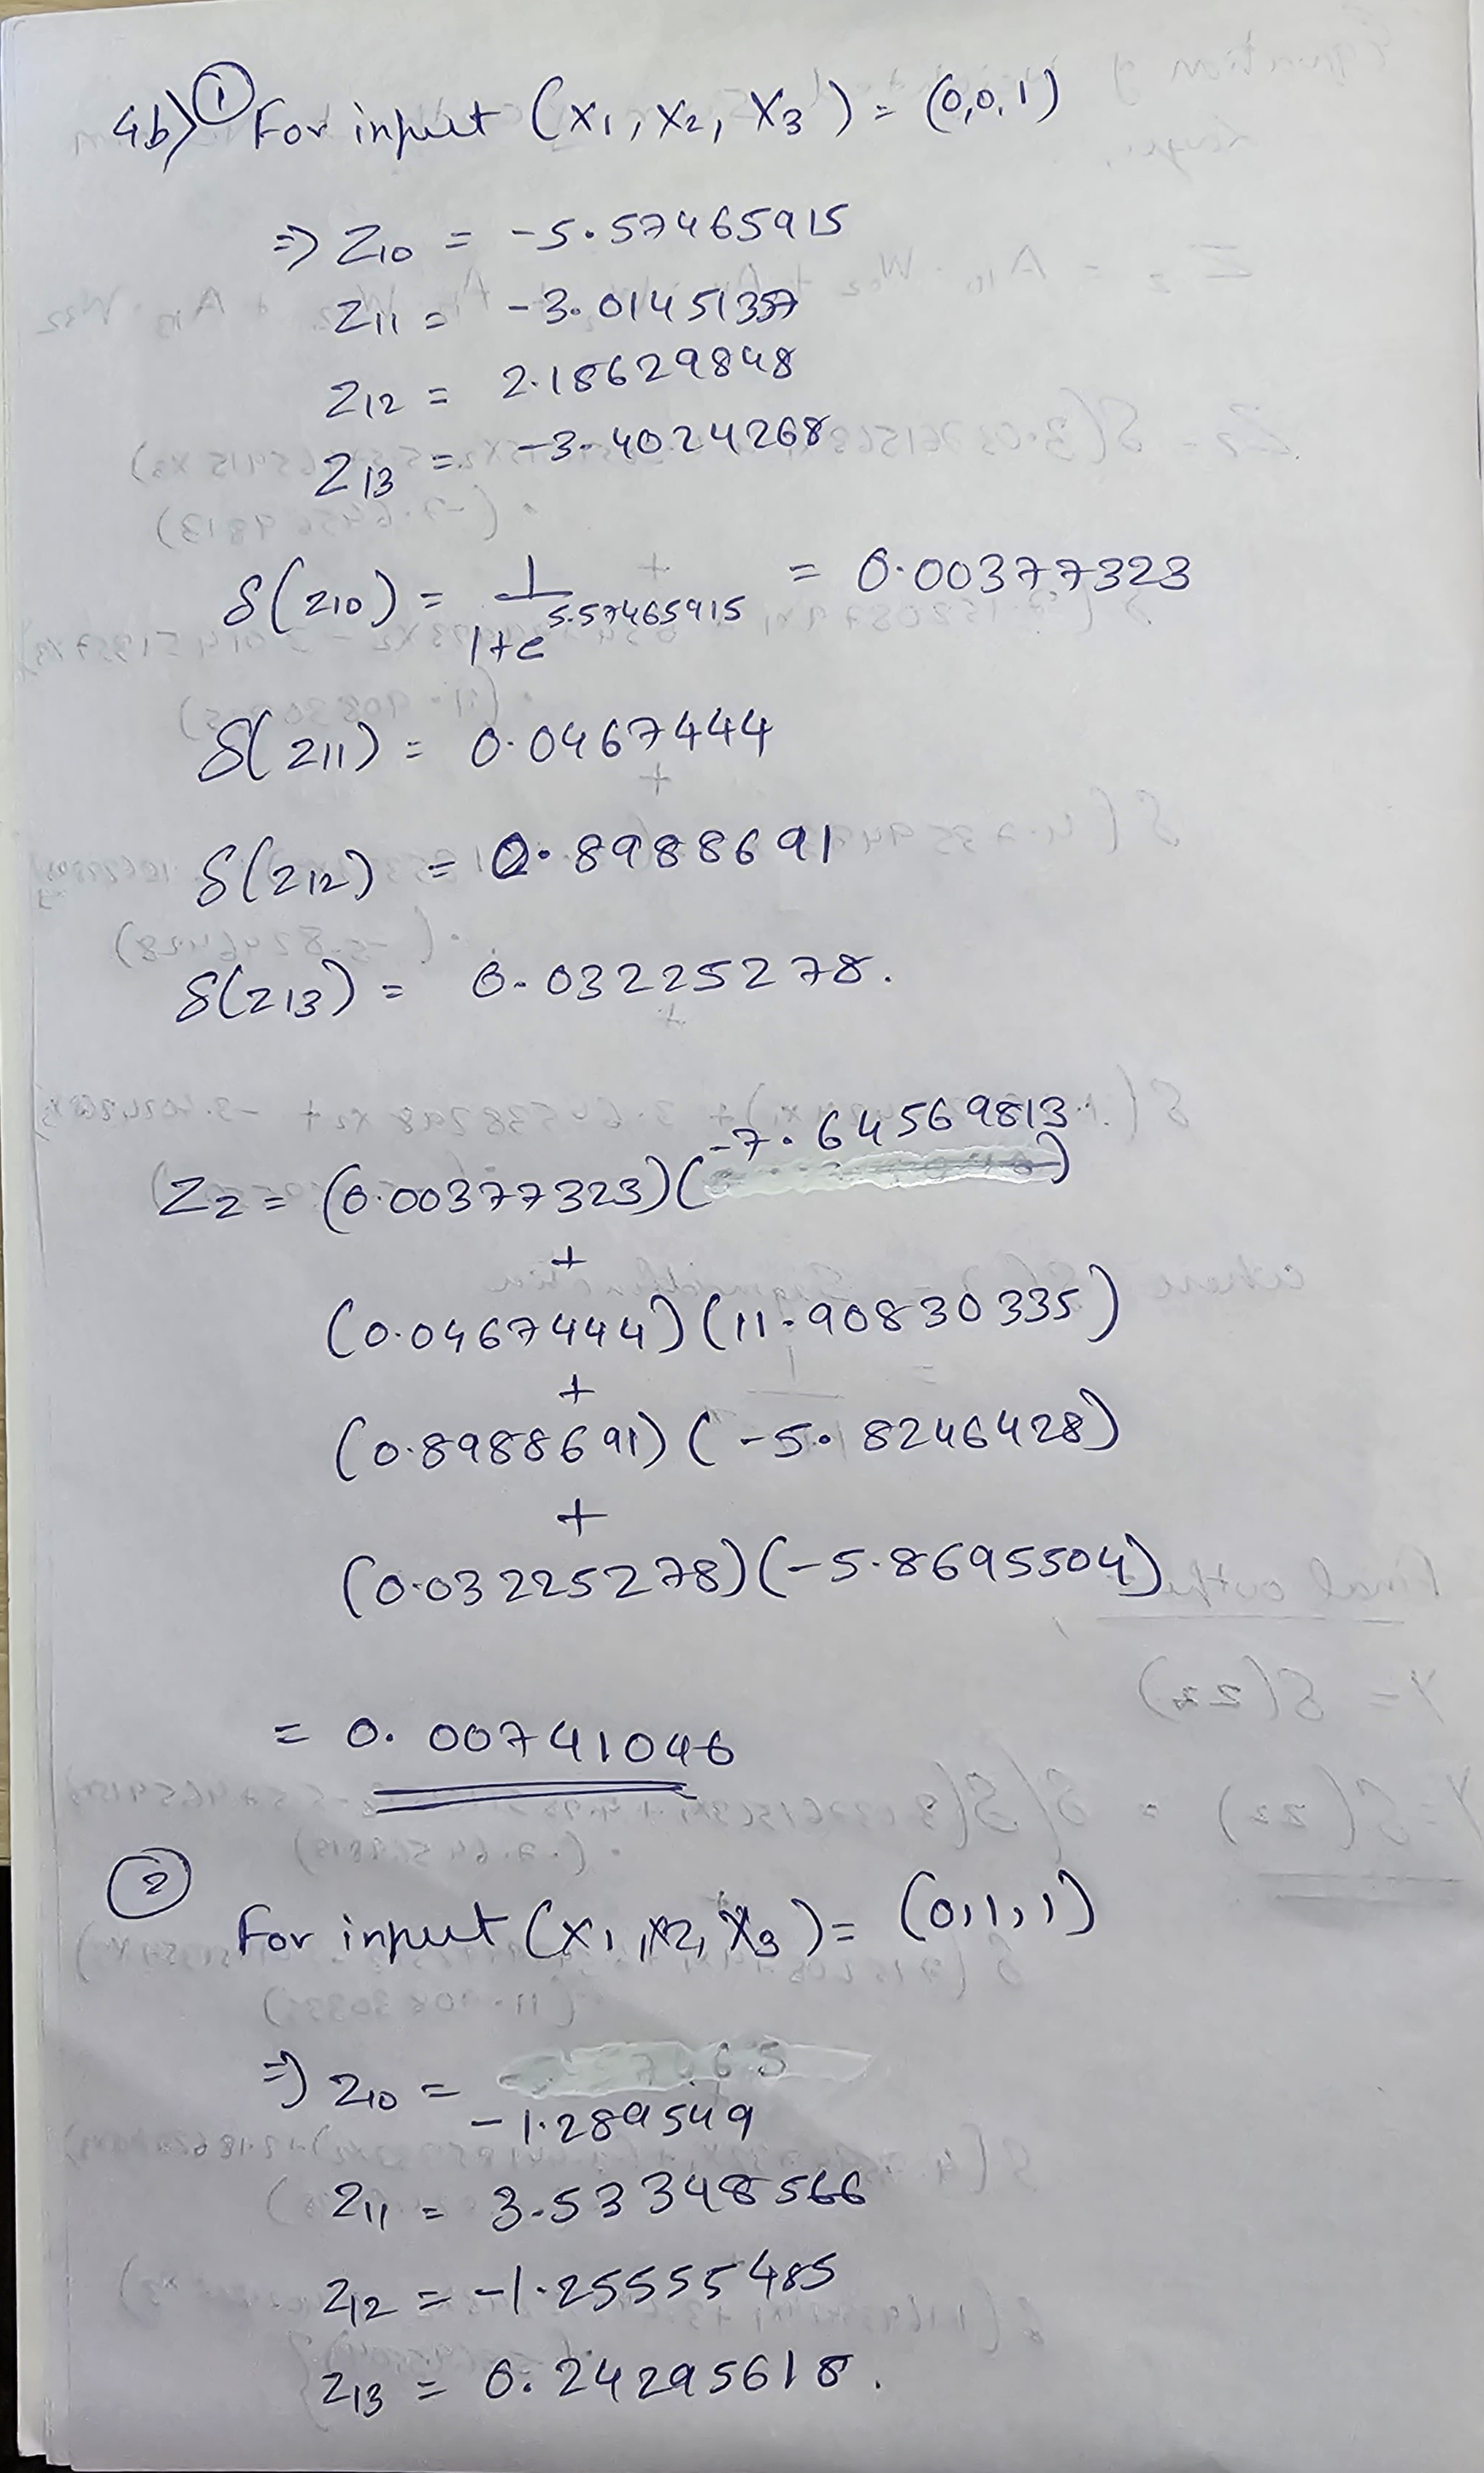 4b) ① For input (X1, X2, X3) = (0,0,1)
=) Z10 = -5.57465915
Z11 = -3.01451357
Z12 = 2.18629848
Z13 = -3.4024268
S(Z10) = 1/1+e^5.57465915 = 0.00377323
S(Z11) = 0.0467444
S(Z12) = 0.8988691
S(Z13) = 0.03225278.
Z2 = (0.00377323)(-7.64569813)
+
(0.0467444)(11.90830335)
+
(0.8988691)(-5.8246428)
+
(0.03225278)(-5.8695504)
= 0.00741046
② For input (X1, X2, X3) = (0,1,1)
=) Z10 = -1.289549
Z11 = 3.53348566
Z12 = -1.25555485
Z13 = 0.24295618.